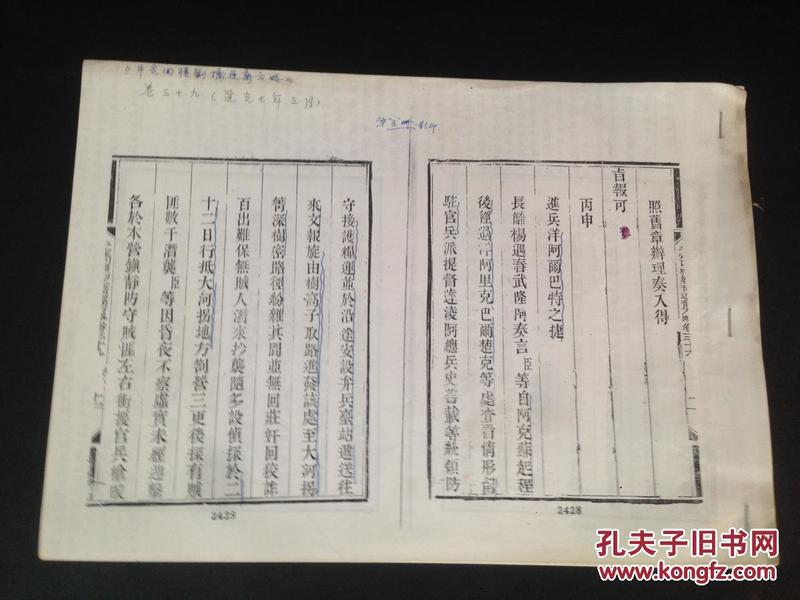 《平定回疆剿擒逆裔方略》
卷三十九（道光七年三月）
照舊章辦理奏入得
旨報可
丙申
進兵洋阿爾巴特之捷
長齡楊遇春武隆阿奏言臣等自阿克蘇起程
後經過洋阿里克巴爾楚克等處查看情形留
駐官兵派提督達淩阿總兵史善載等統領防
2428
守接護糧運並於沿途安設弁兵臺站遞送往
來文報旋由樹窩子取路進發該處至大河拐
箐深樹密路徑紛雜其間並無回莊奸回狡詐
百出難保無賊人潛來抄襲隨多設偵探於二
十二日行抵大河拐地方劄營三更後探有賊
匪數千潛襲臣等因昏夜不察虛實未經迎擊
各於本營鎮靜防守賊匪左右衝撲官兵槍砲
2428
孔夫子旧书网
www.kongfz.com